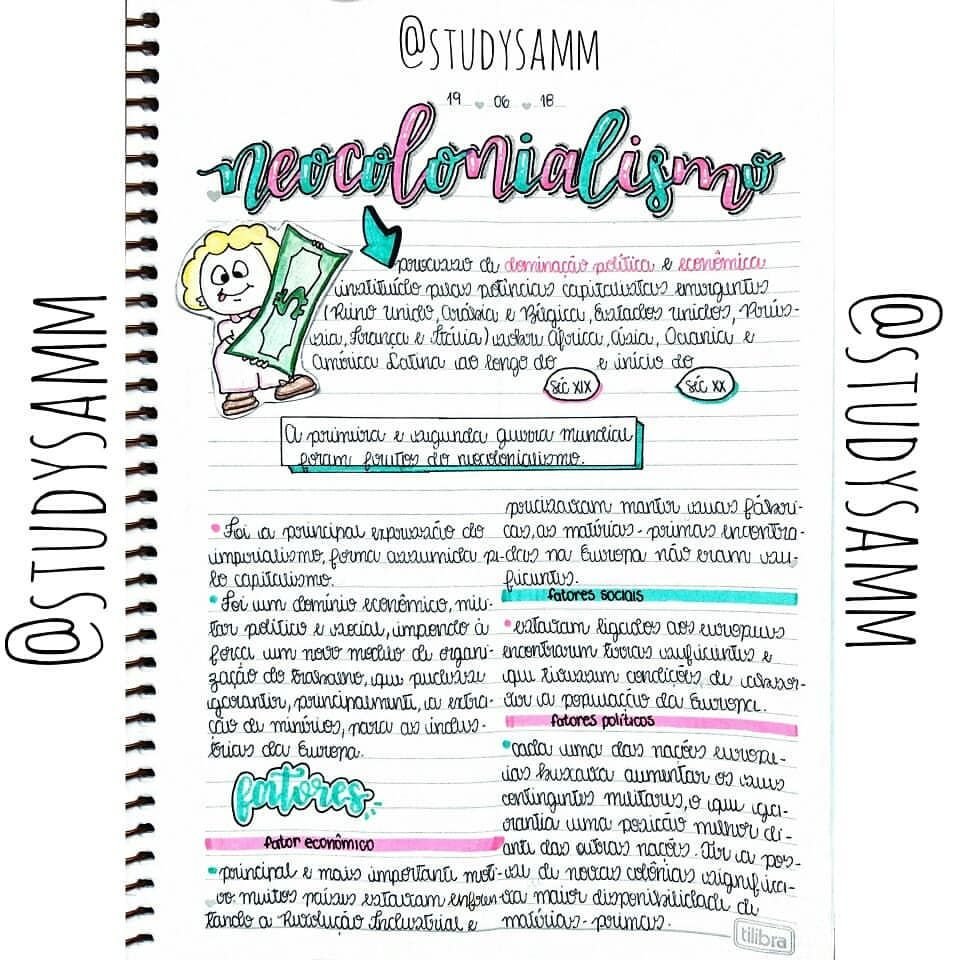 @STUDYSAMM
19 06 18
neocolonialismo
processo de dominação política e econômica
instituído pelas potências capitalistas emergentes
(Reino Unido, Arábia e Bélgica, Estados Unidos, Prús-
sia, França e Itália) sobre África, Ásia, Oceania e
América Latina ao longo do séc XIX e início do séc XX
A primeira e segunda guerra mundial
foram frutos do neocolonialismo.
• Foi a principal expressão do
imperialismo, forma assumida pe-
lo capitalismo.
• Foi um domínio econômico, mili-
tar político e social, impondo à
força um novo modelo de organi-
zação do trabalho, que pudesse
garantir, principalmente, a extra-
ção de minérios, para as indús-
trias da Europa.
fatores
fator econômico
• principal e mais importante moti-
vo. muitos países estavam enfren-
tando a Revolução Industrial e
precisavam manter suas fábri-
cas, as matérias-primas encontra-
das na Europa não eram su-
ficientes.
fatores sociais
• estavam ligados aos europeus
encontrarem terras suficientes e
que tivessem condições de absor-
ver a população da Europa.
fatores políticos
• cada uma das nações europe-
ias buscava aumentar os seus
contingentes militares, o que ga-
rantia uma posição melhor di-
ante das outras nações. Ter a pos-
se de novas colônias significa-
va maior disponibilidade de
matérias-primas.
tilibra
@STUDYSAMM
@STUDYSAMM